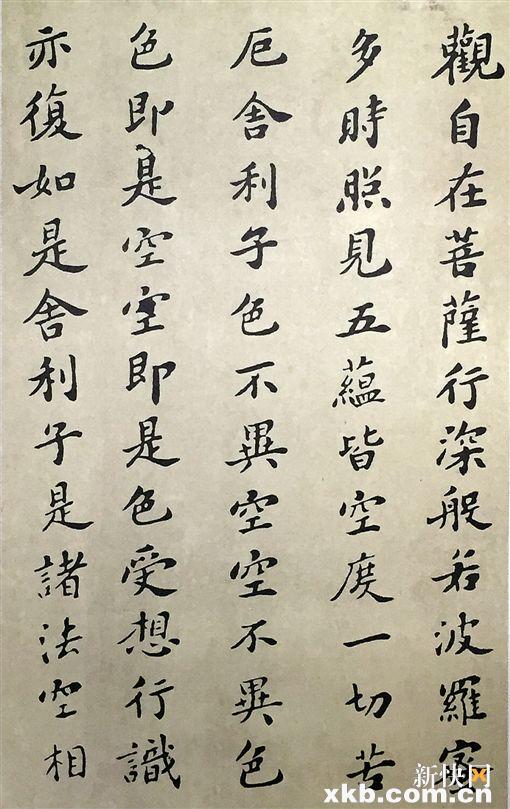 觀自在菩薩行深般若波羅蜜
多時照見五蘊皆空度一切苦
厄舍利子色不異空空不異色
色即是空空即是色受想行識
亦復如是舍利子是諸法空相
新快网
xkb.com.cn